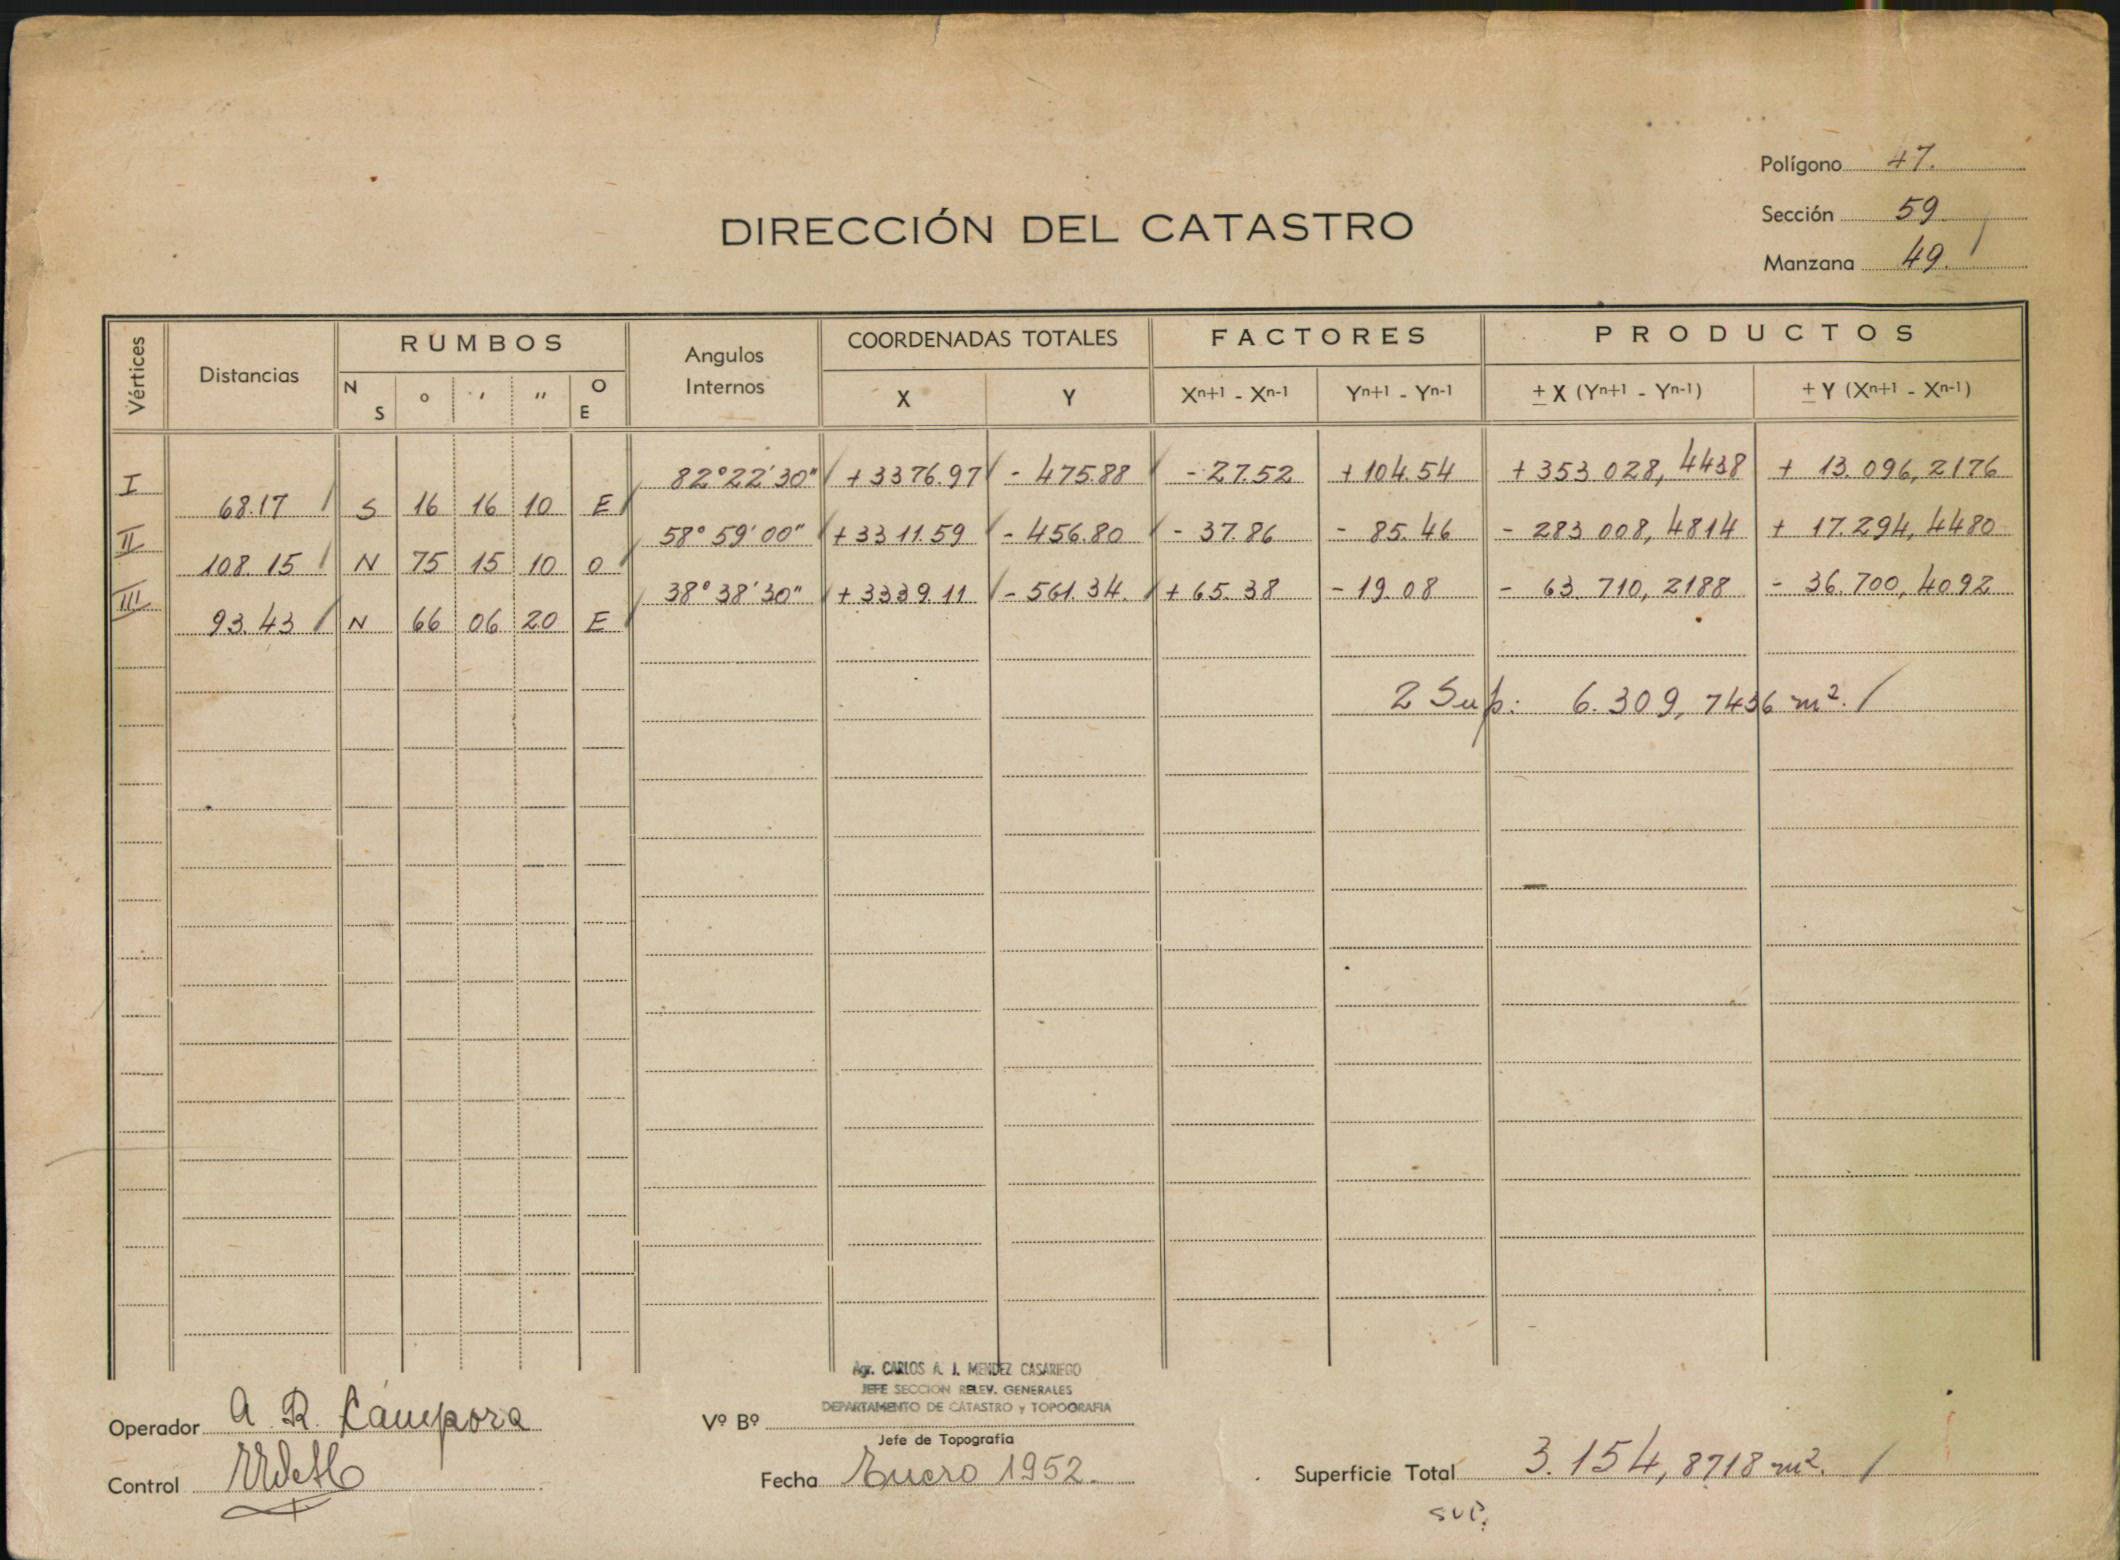 Polígono 47.
Sección 59
Manzana 49.
DIRECCIÓN DEL CATASTRO
Vértices Distancias RUMBOS Angulos Internos COORDENADAS TOTALES FACTORES PRODUCTOS
N S ° ' " O E X Y Xn+1 - Xn-1 Yn+1 - Yn-1 ± X (Yn+1 - Yn-1) ± Y (Xn+1 - Xn-1)
I 82°22'30" +3376.97 - 475.88 - 27.52 + 104.54 + 353 028, 4438 + 13.096, 2176
68.17 S 16 16 10 E
II 58° 59' 00" + 3311.59 - 456.80 - 37.86 - 85.46 - 283 008, 4814 + 17.294, 4480
108.15 N 75 15 10 O
III 38° 38' 30" + 3339.11 - 561.34. + 65.38 - 19.08 - 63.710, 2188 - 36.700, 4092
93.43 N 66 06 20 E
2 Sup: 6.309, 7436 m².
Agr. CARLOS A. J. MENDEZ CASARIEGO
JEFE SECCION RELEV. GENERALES
DEPARTAMENTO DE CATASTRO y TOPOGRAFIA
Operador A. R. Cámpora
Vº Bº
Jefe de Topografía
Control
Fecha Enero 1952.
Superficie Total 3.154, 8718 m².
SUP.